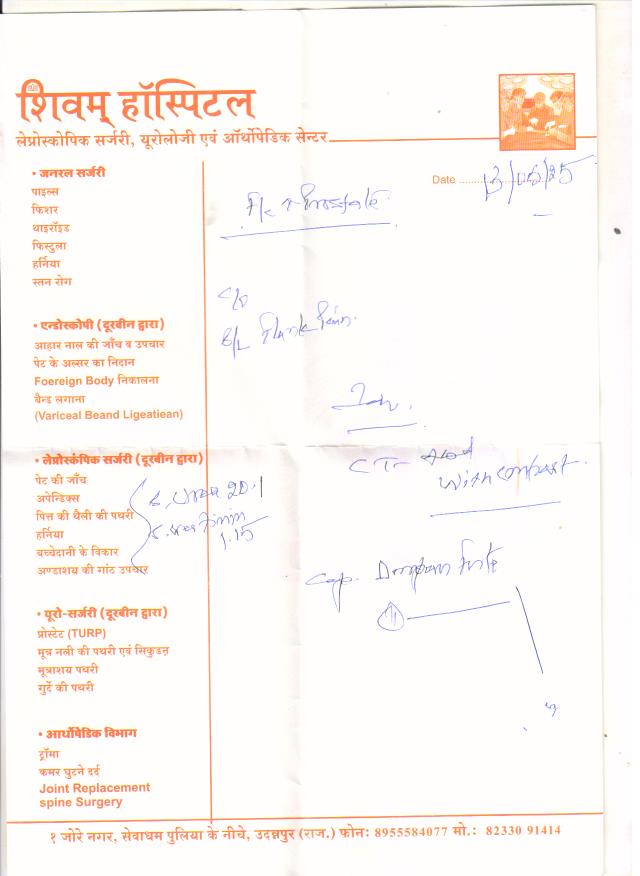 शिवम् हॉस्पिटल
लेप्रोस्कोपिक सर्जरी, यूरोलोजी एवं ऑर्थोपेडिक सेन्टर
Date 13/05/25
• जनरल सर्जरी
पाइल्स
फिशर
थाइरॉइड
फिस्टुला
हर्निया
स्तन रोग
• एन्डोस्कोपी (दूरबीन द्वारा)
आहार नाल की जाँच व उपचार
पेट के अल्सर का निदान
Foereign Body निकालना
बैन्ड लगाना
(Variceal Beand Ligeatiean)
• लेप्रोस्कंपिक सर्जरी (दूरबीन द्वारा)
पेट की जाँच
अपेन्डिक्स
पित्त की थैली की पथरी
हर्निया
बच्चेदानी के विकार
अण्डाशय की गांठ उपचार
S. Urea 20.1
1.15
• यूरो-सर्जरी (दूरबीन द्वारा)
प्रोस्टेट (TURP)
मूत्र नली की पथरी एवं सिकुडन
मूत्राशय पथरी
गुर्दे की पथरी
• आर्थोपेडिक विभाग
ट्रॉमा
कमर घुटने दर्द
Joint Replacement
spine Surgery
Prostate
C/o
B/L Flank Pain.
Inv.
CT
With contrast.
Cap.
१ जोरे नगर, सेवाधम पुलिया के नीचे, उदन्नपुर (राज.) फोनः 8955584077 मो.: 82330 91414